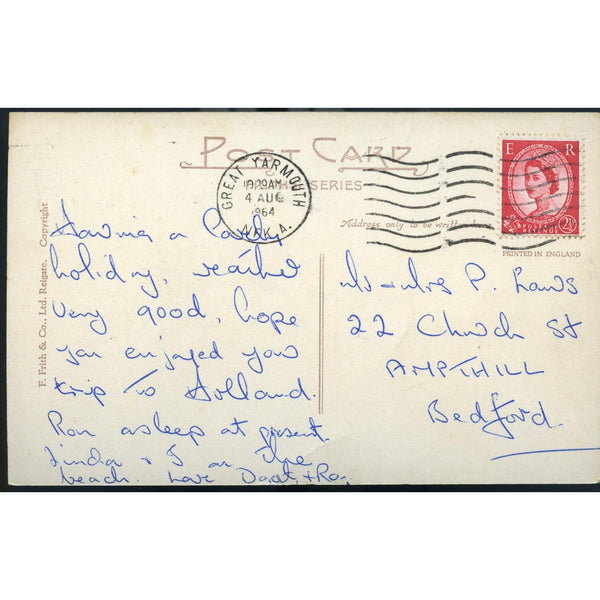 POST CARD
FRITH'S SERIES
GREAT YARMOUTH
10.20AM
4 AUG
1964
NFK. A.
E R
POSTAGE
REVENUE
2½D
Address only to be written here
PRINTED IN ENGLAND
F. Frith & Co., Ltd. Reigate. Copyright
Having a lovely
holiday, weather
very good, hope
you enjoyed your
trip to Holland.
Ron asleep at present.
Linda & I on the
beach. Love
Mr & Mrs P. Laws
22 Church St
AMPTHILL
Bedford.